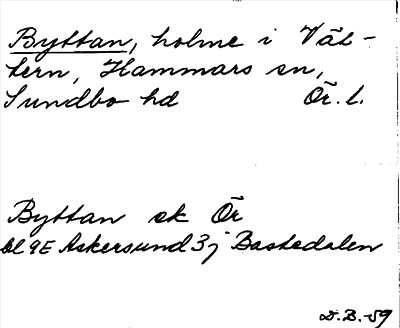 Byttan, holme i Vät-
tern, Hammars sn,
Sundbo hd Ör. l.
Byttan ek Ör
bl 9E Askersund 3j Bastedalen
D.B.-59